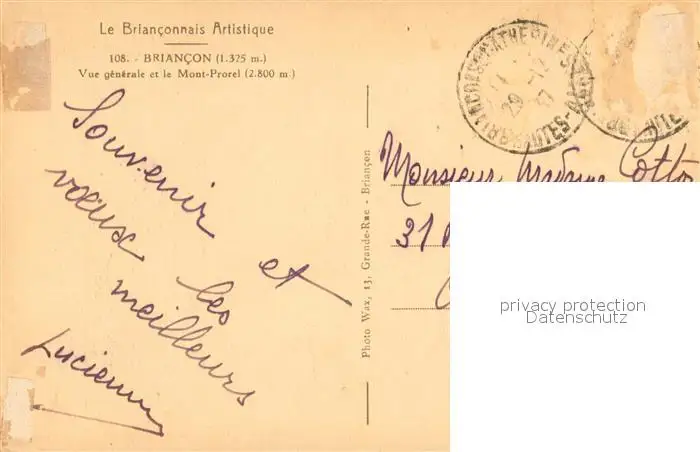 Le Briançonnais Artistique
108. - BRIANÇON (1.325 m.)
Vue générale et le Mont-Prorel (2.800 m.)
Souvenir et
vœux les
meilleurs
Lucienne
Photo Wax, 13, Grande-Rue - Briançon
Monsieur Madame
31
privacy protection
Datenschutz